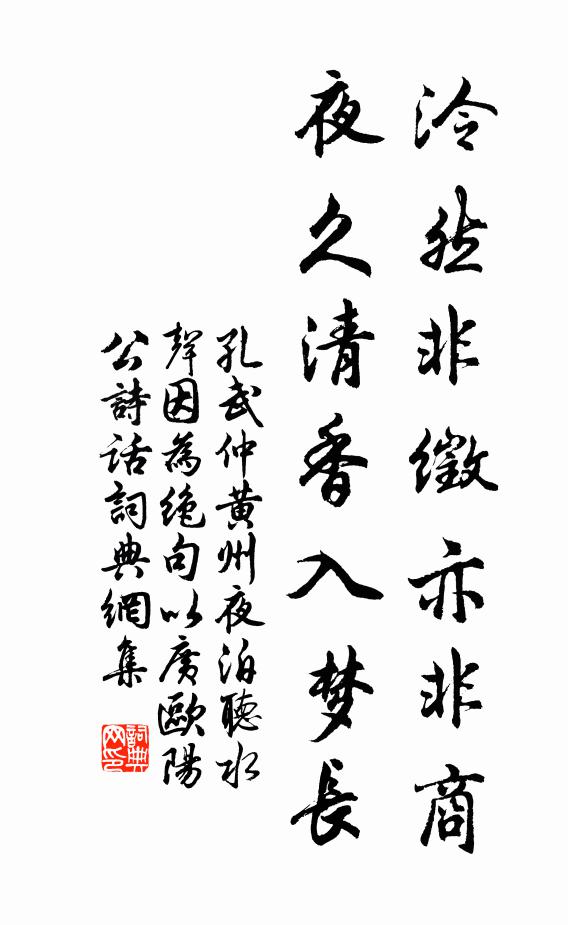 泠然非徵亦非商
夜久清香入梦長
孔武仲黄州夜泊聽水
聲因為絶句以廣歐陽
公詩话詞典網集
詞典网印